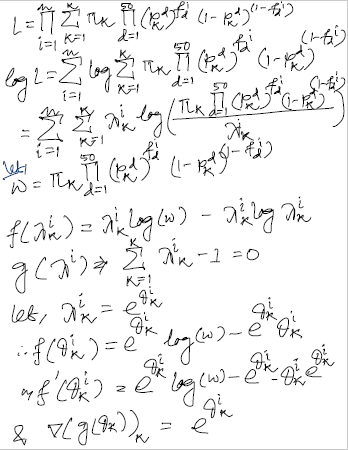 L = ∏_{i=1}^{n} Σ_{k=1}^{K} π_k ∏_{d=1}^{50} (p_k^d)^{f_d^i} (1 - p_k^d)^{(1 - f_d^i)}
log L = Σ_{i=1}^{n} log Σ_{k=1}^{K} π_k ∏_{d=1}^{50} (p_k^d)^{f_d^i} (1 - p_k^d)^{(1 - f_d^i)}
= Σ_{i=1}^{n} Σ_{k=1}^{K} λ_k^i log( π_k ∏_{d=1}^{50} (p_k^d)^{f_d^i} (1 - p_k^d)^{(1 - f_d^i)} / λ_k^i )
let
w = π_k ∏_{d=1}^{50} (p_k^d)^{f_d^i} (1 - p_k^d)^{(1 - f_d^i)}
f(λ_k^i) = λ_k^i log(w) - λ_k^i log λ_k^i
g(λ^i) ⇒ Σ_{k=1}^{K} λ_k^i - 1 = 0
let, λ_k^i = e^{θ_k^i}
∴ f(θ_k^i) = e^{θ_k^i} log(w) - e^{θ_k^i} θ_k^i
f'(θ_k^i) = e^{θ_k^i} log(w) - e^{θ_k^i} - θ_k^i e^{θ_k^i}
& ∇(g(θ_k))_k = e^{θ_k^i}